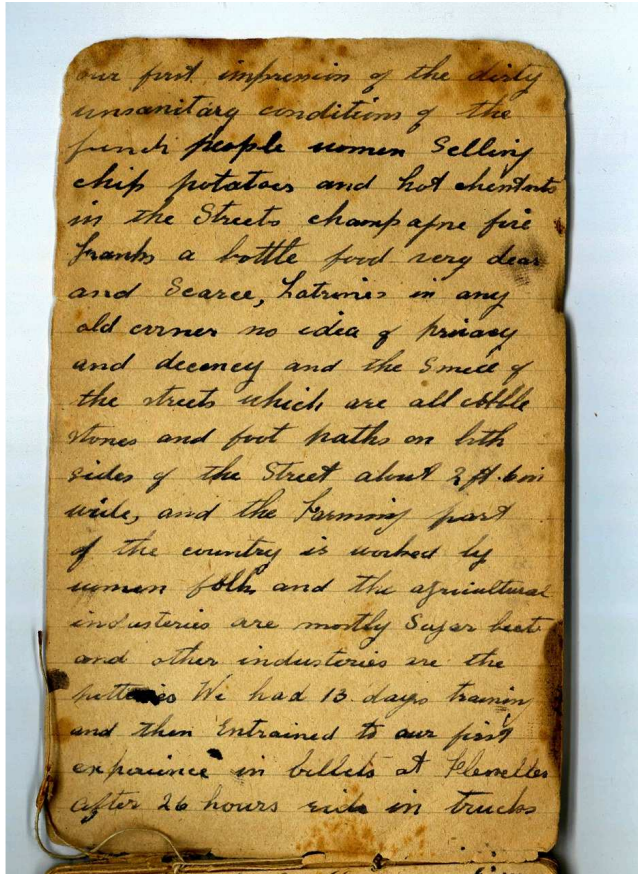 our first impression of the dirty
unsanitary conditions of the
french people women Selling
chip potatoes and hot chentnuts
in the Streets champagne five
franks a bottle food very dear
and Scarce, Latrines in any
old corner no idea of privacy
and decency and the Smell of
the streets which are all cobble
stones and foot paths on both
sides of the Street about 2 ft. 6 in
wide, and the Farming part
of the country is worked by
women folk and the agricultural
industeries are mostly Sugar beet
and other industeries are the
potteries We had 13 days training
and then Entrained to our first
experience in billets at
after 26 hours ride in trucks